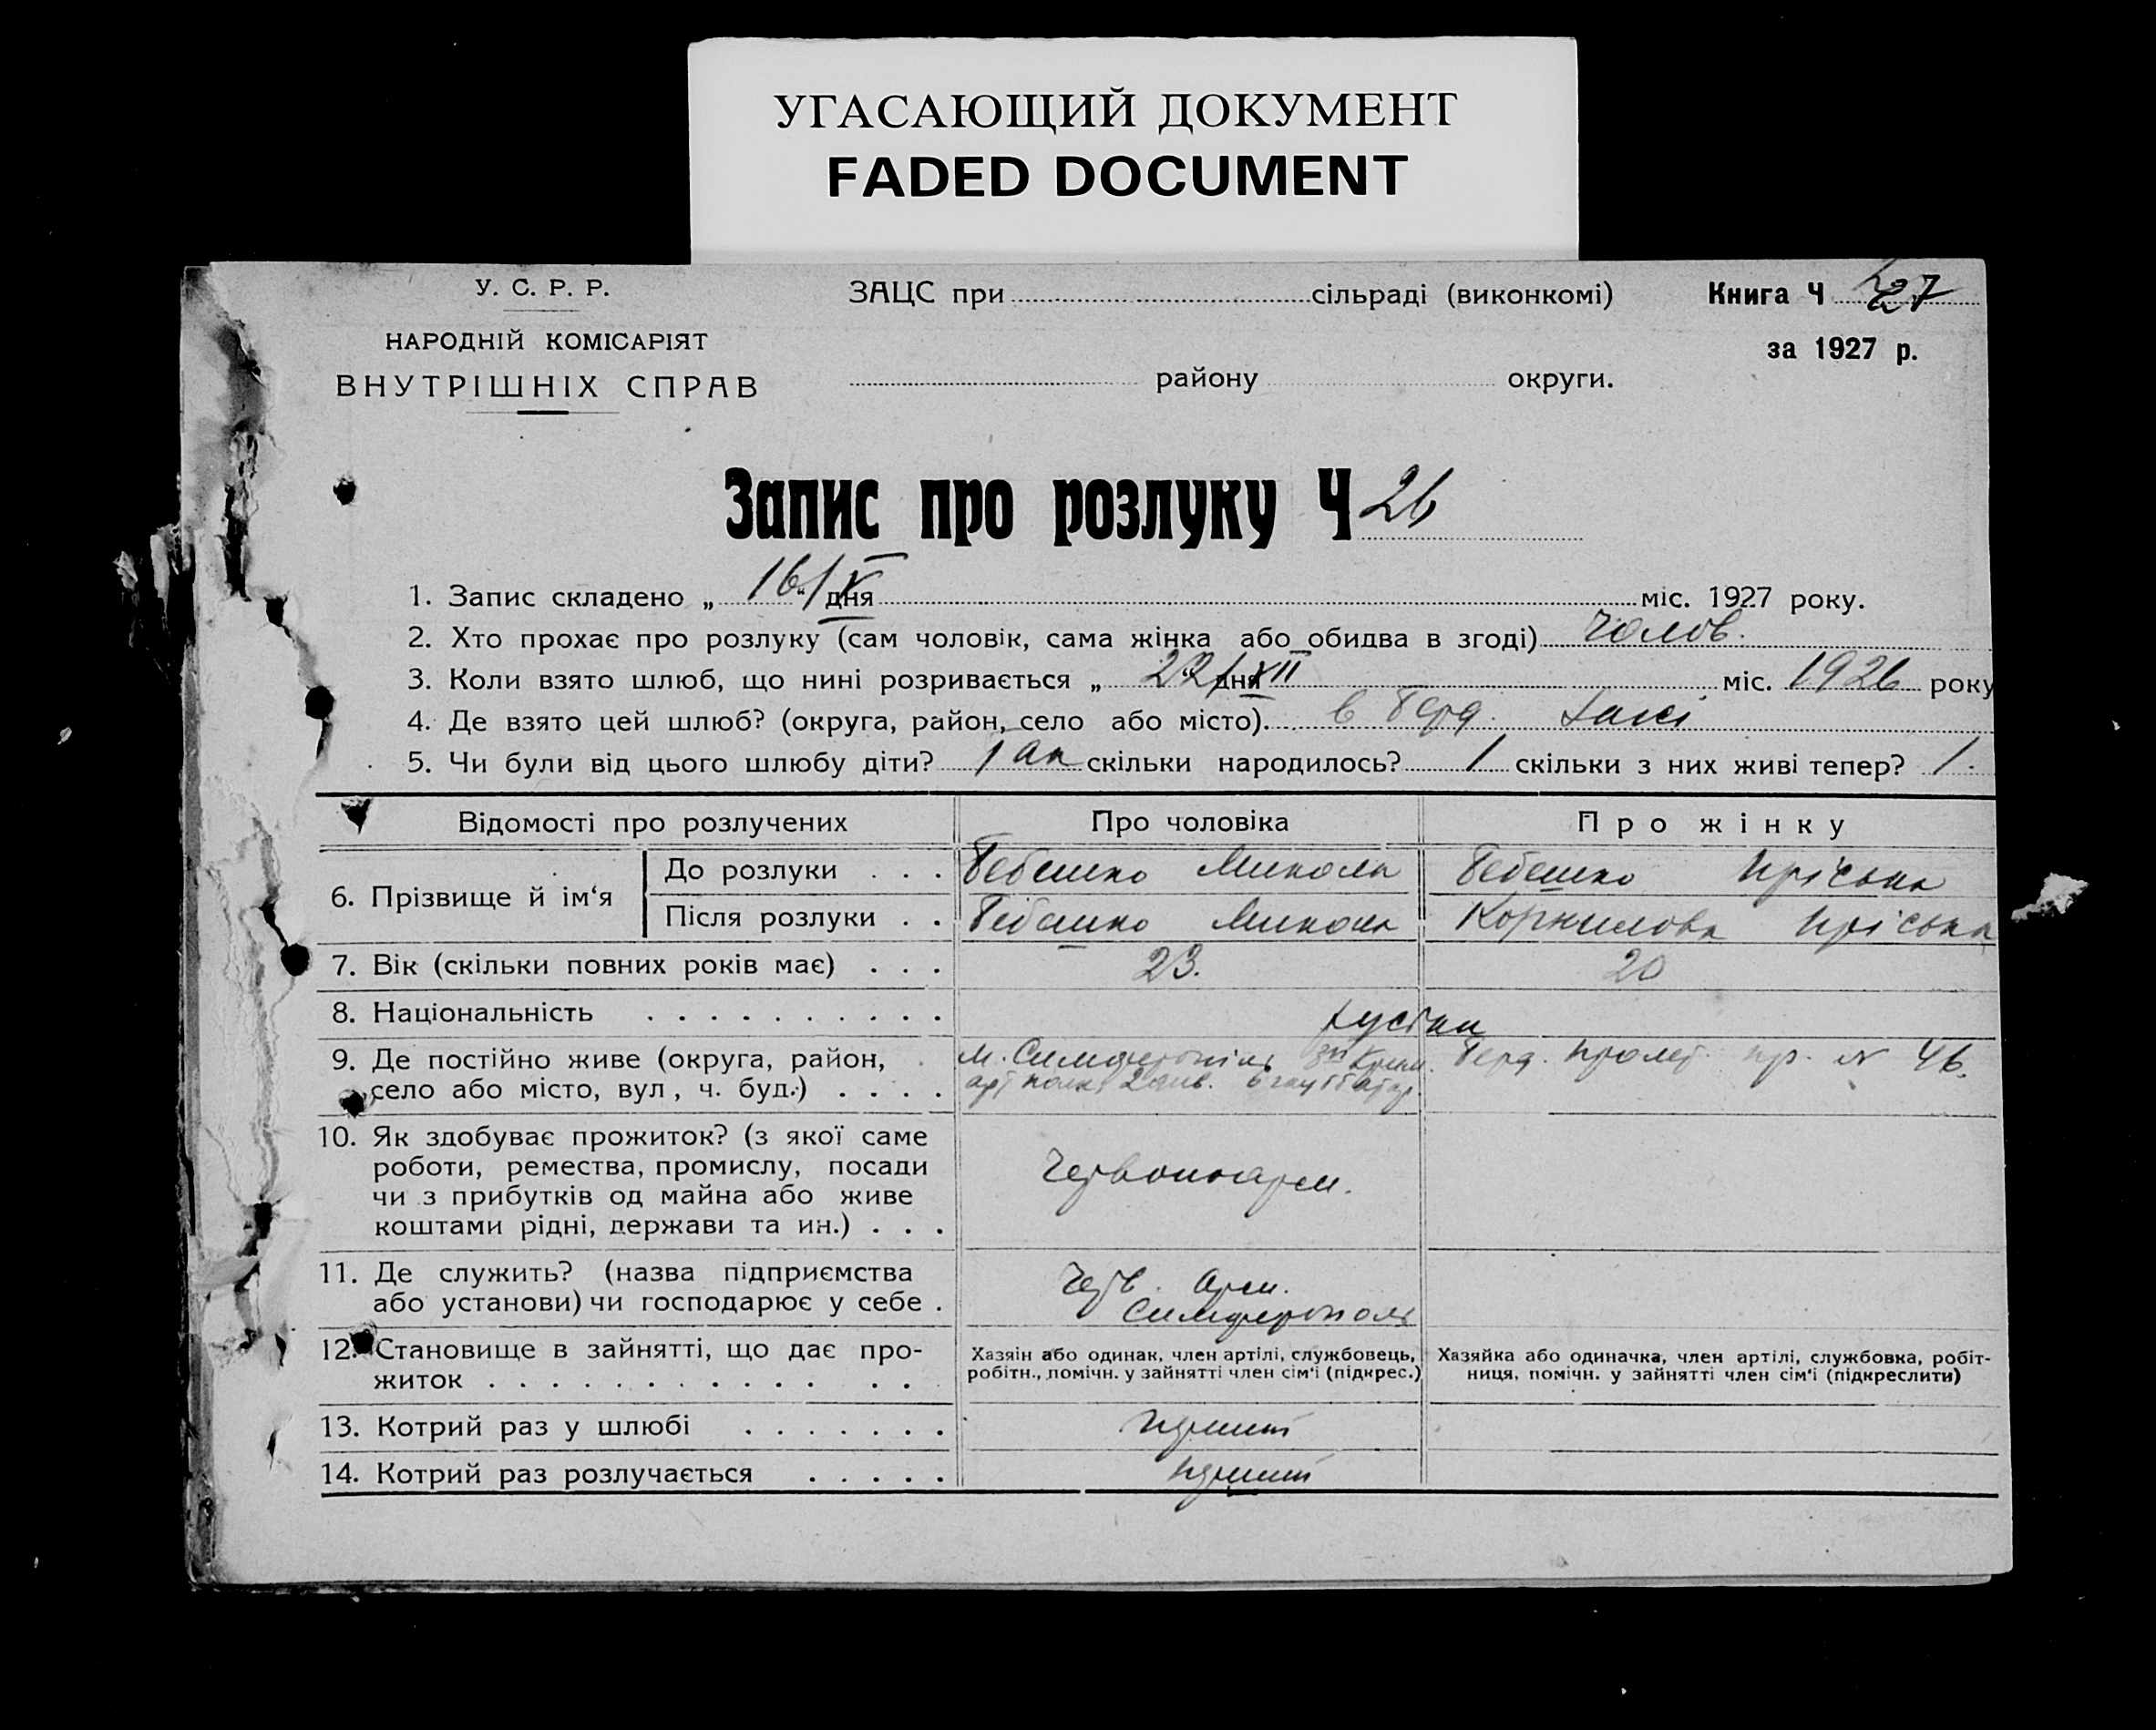 УГАСАЮЩИЙ ДОКУМЕНТ
FADED DOCUMENT
У. С. Р. Р.
НАРОДНІЙ КОМІСАРІЯТ
ВНУТРІШНІХ СПРАВ
ЗАЦС при сільраді (виконкомі)
району округи.
Книга Ч 27
за 1927 р.
Запис про розлуку Ч 26
1. Запис складено „ 16/X “ дня міс. 1927 року.
2. Хто прохає про розлуку (сам чоловік, сама жінка або обидва в згоді) Чолов.
3. Коли взято шлюб, що нині розривається „ 22/XII “ дня міс. 1926 року
4. Де взято цей шлюб? (округа, район, село або місто). в Берд. Загсі
5. Чи були від цього шлюбу діти? 1 скільки народилось? 1 скільки з них живі тепер? 1.
Відомості про розлучених Про чоловіка Про жінку
6. Прізвище й ім‘я
До розлуки . . . Бебешко Микола Бебешко Пріська
Після розлуки . . Бебешко Микола Корнилова Пріська
7. Вік (скільки повних років має) . . . 23. 20
8. Національність . . . . . . . . . . русіки
9. Де постійно живе (округа, район, м. Симферопіль Крим. Берд. Пролет. пр. № 46.
село або місто, вул, ч. буд.) . . . . арт полк,
10. Як здобуває прожиток? (з якої саме
роботи, ремества, промислу, посади
чи з прибутків од майна або живе
коштами рідні, держави та ин.) . . . Червоноарм.
11. Де служить? (назва підприємства Черв. Арм.
або установи) чи господарює у себе . Симферополь
12. Становище в зайнятті, що дає про-
житок . . . . . . . . . . . . . .
Хазяін або одинак, член артілі, службовець,
робітн., помічн. у зайнятті член сім‘і (підкрес.)
Хазяйка або одиначка, член артілі, службовка, робіт-
ниця, помічн. у зайнятті член сім‘і (підкреслити)
13. Котрий раз у шлюбі . . . . . . . перший
14. Котрий раз розлучається . . . . . перший